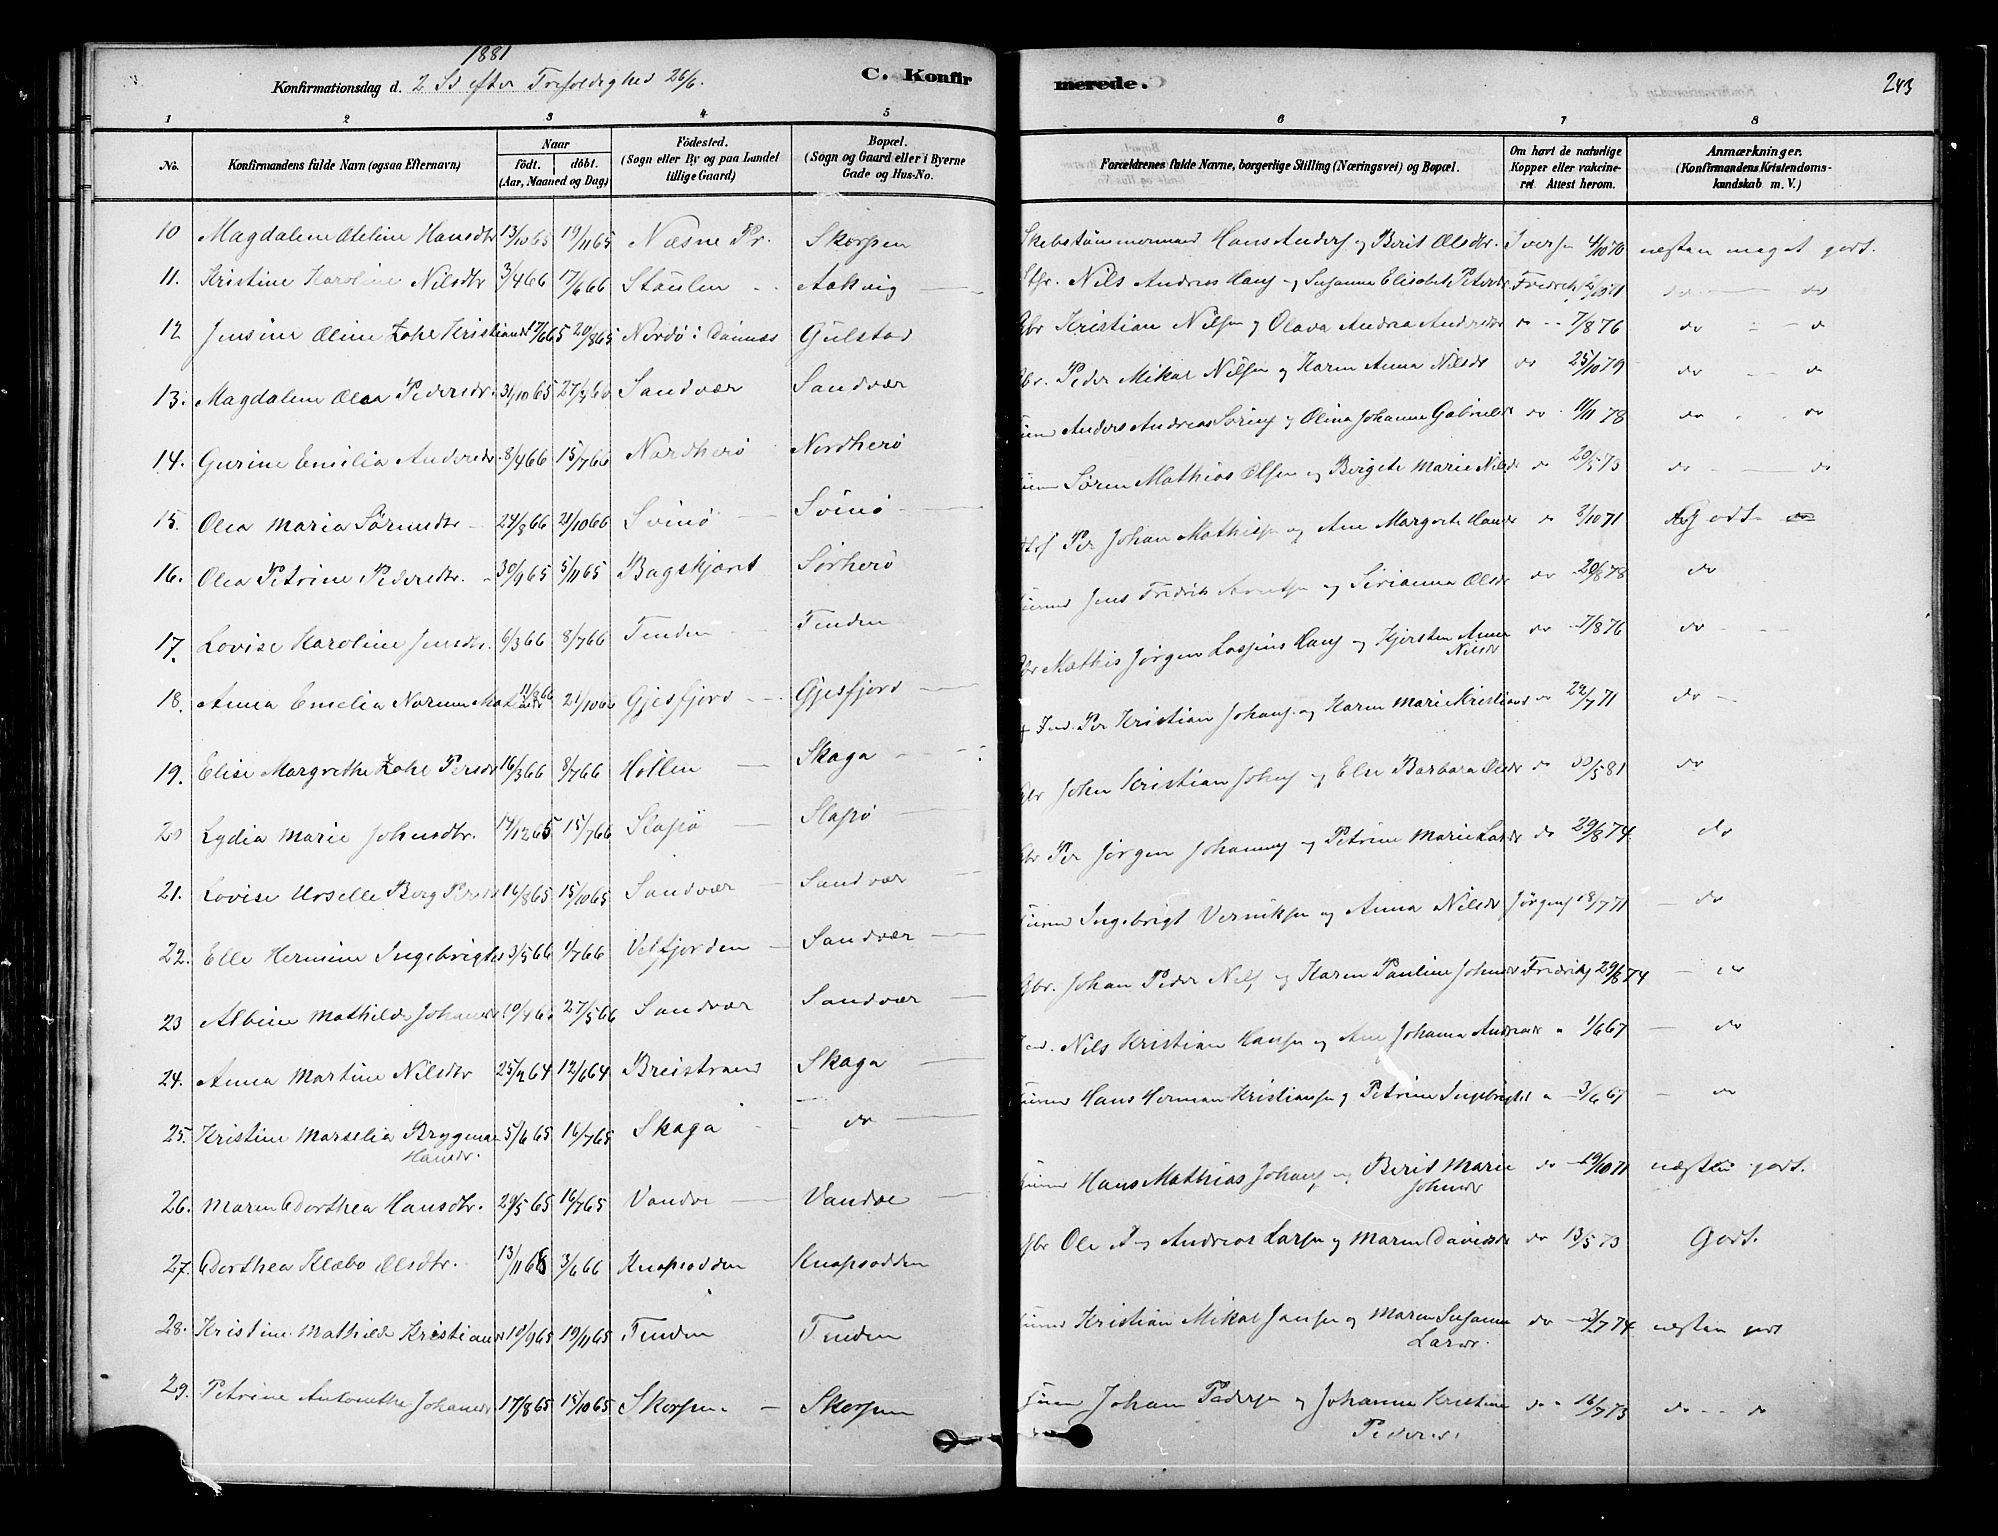 1881
Konfirmationsdag d. 2 Sd efter Trefoldighed 26/6.
C. Konfir
merede.
243
1 2 3 4 5 6 7 8
No. Konfirmandens fulde Navn (ogsaa Efternavn) Naar födt. döbt. (Aar, Maaned og Dag) Födested. (Sogn eller By og paa Landet tillige Gaard) Bopæl. (Sogn og Gaard eller i Byerne Gade og Hus-No. Forældrenes fulde Navne, borgerlige Stilling (Næringsvei) og Bopæl. Om havt de naturlige Kopper eller vakcineret. Attest herom. Anmærkninger. (Konfirmandens Kristendomskundskab m. V.)
10 Magdalene Oteline Hansdtr 13/10 65 19/11 65 Næsne Pr. Skorpen Hans Anders og Berit Olsdtr. Ivers 4/10 70 næsten meget godt.
11. Kristine Karoline Nilsdtr 3/4 66 17/6 66 Staulen Aakvig Nils Andreas Hans og Susanna Elisabet Petersdr Fredrik do do
12 Jensine Oline Zahl Kristiansd 17/6 65 20/8 65 Nordø i Dønnæs Gulstad Gbr Kristian Nilsen og Olava Andrea Andersdtr do 7/8 76 do do
13. Magdalene Olea Pedersdr. 31/10 65 Sandvær Sandvær Gbr. Peder Mikal Nilsen og Karen Anna Nilsdr do 25/10 79 do do
14. Gurine Emelia Andersdr. 8/4 66 15/7 66 Nordherø Nordherø Anders Andreas Sørens og Olina Johanna Gabrielsdr do 11/11 78 do do
15. Olea Maria Sørensdtr 24/8 66 21/10 66 Svinø Svinø Søren Mathias Olsen og Bergete Marie Nilsdr do 20/5 73 do do
16. Olea Petrine Pedersdtr. 30/9 65 5/11 65 Bagskjæret Sørherø Per Johan Mathisen og Ane Margrete Hansdr do 9/10 71 Godt
17. Lovise Karoline Jensdtr. 6/3 66 8/7 66 Tenden Tenden Jens Fredrik Arntsen og Sirianna Olsdr do 20/8 78 do
18. Anna Emelia Norum Mathisdr 11/8 66 21/10 66 Gjesfjord Gjesfjord Gbr Mathis Jørgen Hans og Kjersten Anna Nilsdr do 7/8 76 do
19. Elise Margrethe Zahl Persdtr 16/3 66 8/7 66 Hollen Skaga Ind. Per Kristian Johans og Karen Marie Kristiansd do 22/7 71 do
20 Lydia Marie Johnsdtr. 17/12 65 15/7 66 Slapø Slapø Gbr John Kristian Johns og Else Barbara Olsdr do do
21. Lovise Urselle Berg Persdr 16/8 65 15/10 65 Sandvær Sandvær Gbr Per Jørgen Johannes og Petrine Marie Larsdr do 29/8 74 do
22. Elle Hermine Ingebrigtsd 3/5 66 1/7 66 Velfjorden Sandvær Ingebrigt Verniksen og Anna Nilsdr Jørgens 18/7 71 do
23 Albine Mathilde Johansdr 27/5 66 Sandvær Sandvær Gbr. Johan Peder Nils og Karen Pauline Johnsdr Fredriks 29/8 74 do
24. Anna Martine Nilsdtr 25/2 64 12/6 64 Breistrand Skaga Ind. Nils Kristian Hansen og Ane Johanna Andreasdr 1/6 67 do
25. Kristine Marselia Brygman Hansdr. 5/6 65 16/7 65 Skaga do Hans Herman Kristiansen og Petrine Ingebrigtsd 3/6 67 do
26. Maren Dorthea Hansdtr. 29/5 65 16/7 65 Vandve Vandve Hans Mathias Johans og Berit Marie Johnsdr do 19/10 71 næsten godt.
27. Dorthea Klæbo Olsdtr. 3/6 66 Knapsodden Knapsodden Gbr Ole Andreas Larsen og Maren Davidsdr do 13/5 73 Godt.
28. Kristine Mathilde Kristiansd 10/9 65 19/11 65 Tenden Tenden Kristian Mikal Jansen og Maren Susanna Larsdr. do 2/7 74 næsten godt
29. Petrine Antonethe Johansdr 17/8 65 15/10 65 Skorpen Skorpen Johan Pedersen og Johanna Kristine Pedersd. do 16/7 73 do do